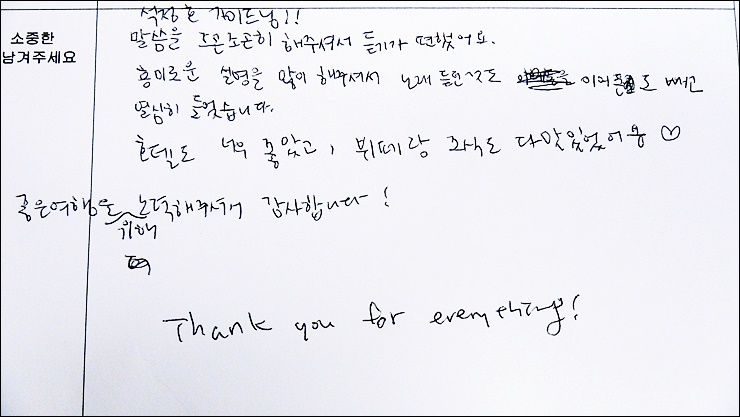 석정호 가이드님!!
소중한
말씀을 조곤조곤히 해주셔서 듣기가 편했어요.
남겨주세요
흥미로운 설명을 많이 해주셔서 노래 듣던것도 이어폰도 빼고
열심히 들었습니다.
호텔도 너무 좋았고, 뷔페랑 조식도 다 맛있었어용 ♡
좋은여행을 위해 노력해주셔서 감사합니다!
Thank you for everything!